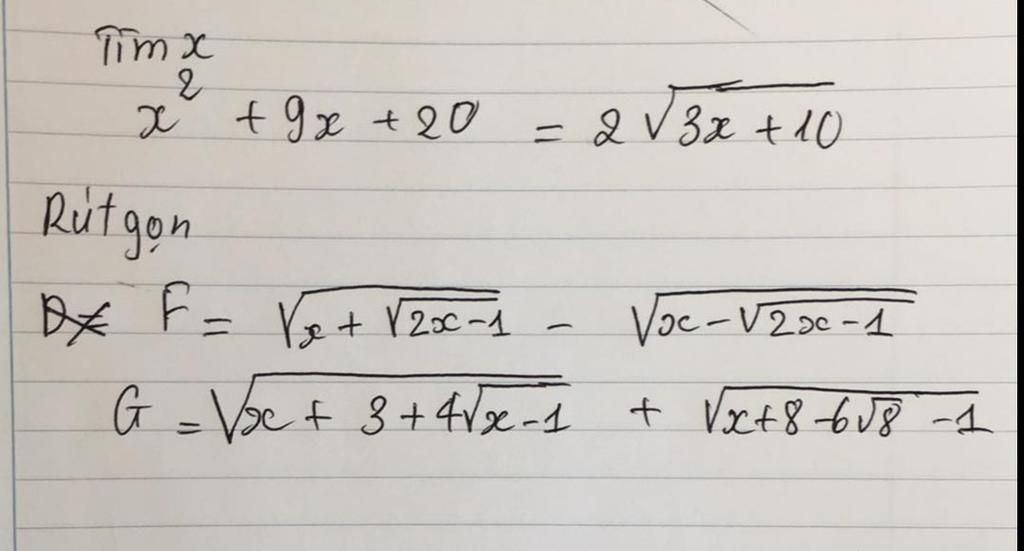 Tìm x
x² + 9x + 20 = 2√(3x + 10)
Rút gọn
F = √(x + √(2x - 1)) - √(x - √(2x - 1))
G = √(x + 3 + 4√(x - 1)) + √(x + 8 - 6√8 - 1)